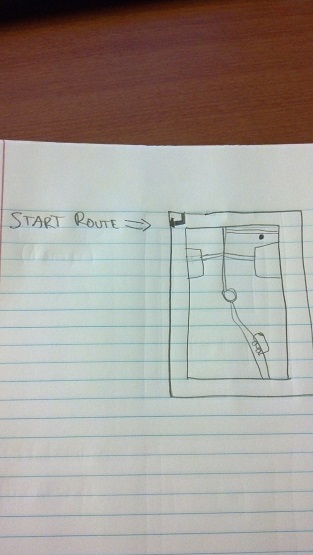 START ROUTE ⇒